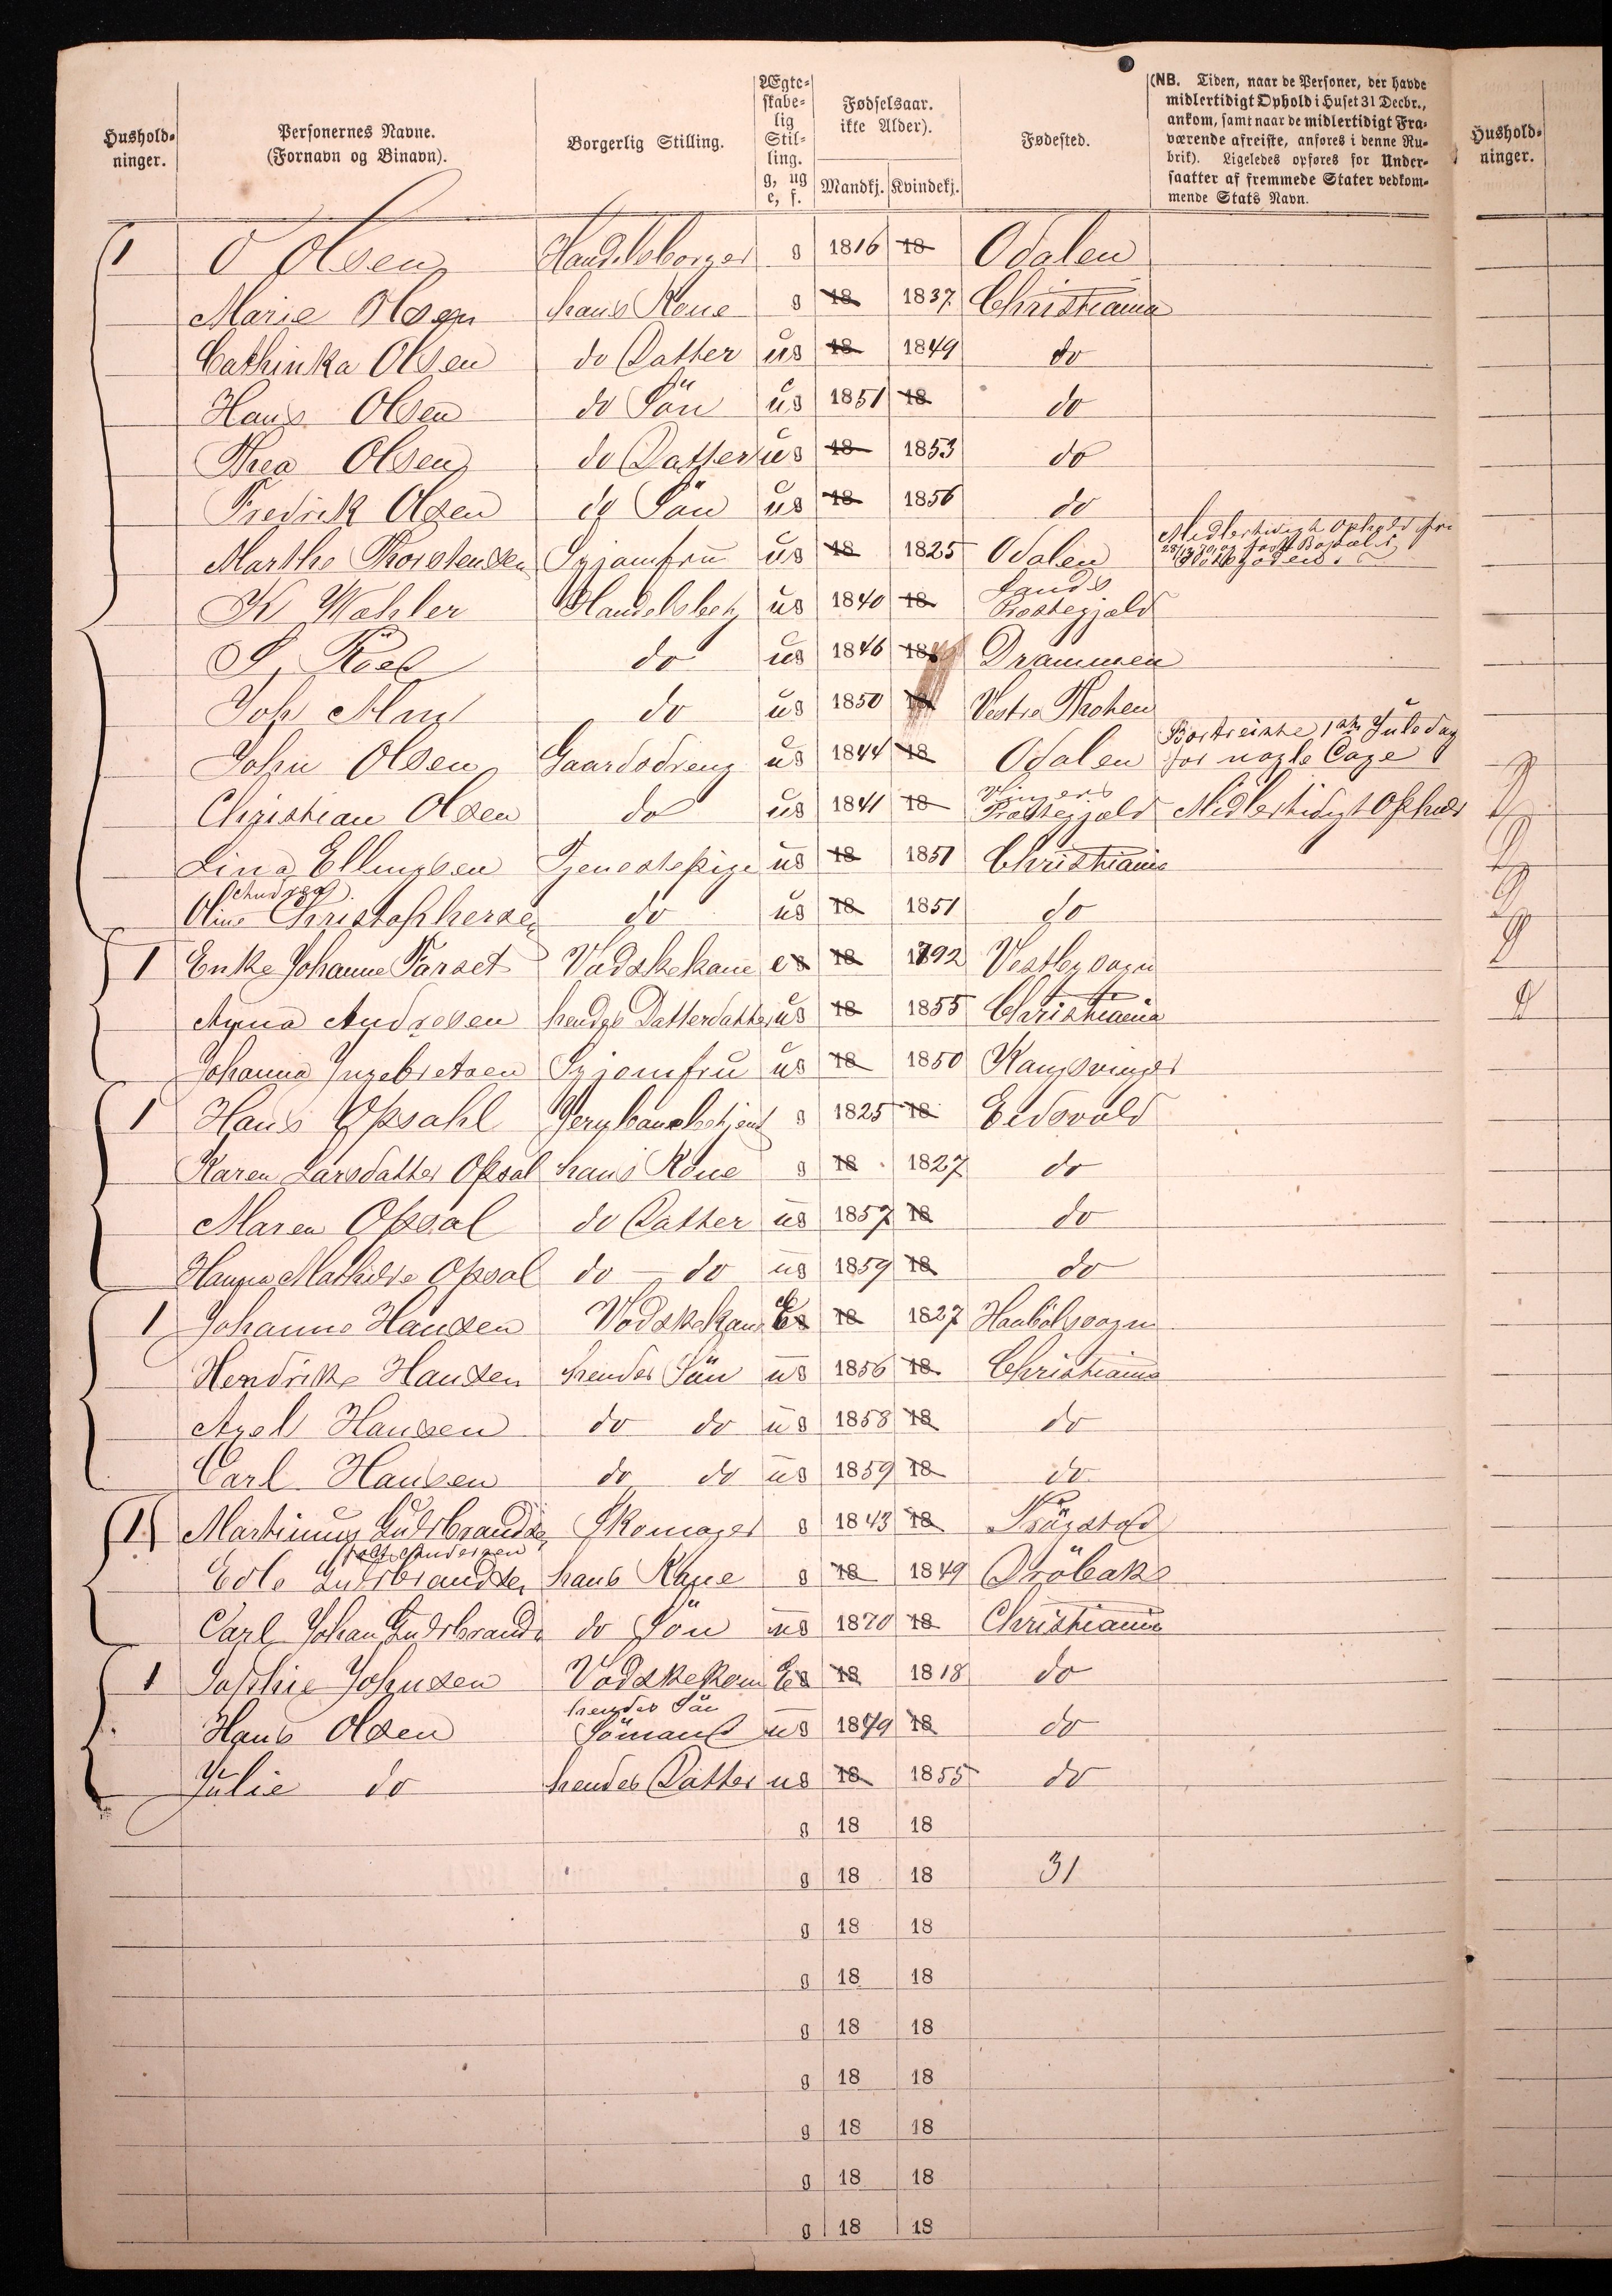 Hushold-
ninger.
Personernes Navne.
(Fornavn og Binavn).
Borgerlig Stilling.
Ægte-
skabe-
lig
Stil-
ling.
g, ug
e, f.
Fødselsaar.
ikke Alder).
Mandkj. Kvindekj.
Fødested.
(NB. Tiden, naar de Personer, der havde
midlertidigt Ophold i Huset 31 Decbr.,
ankom, samt naar de midlertidigt Fra-
værende afreiste, anføres i denne Ru-
brik). Ligeledes opføres for Under-
saatter af fremmede Stater vedkom-
mende Stats Navn.
Hushold-
ninger.
1 O Olsen Handelsborger g 1816 18 Odalen
Marie Olsen hans Kone g 18 1837 Christiania
Cathinka Olsen do Datter ug 18 1849 do
Hans Olsen do Sön ug 1851 18 do
Thea Olsen do Datter ug 18 1853 do
Fredrik Olsen do Sön ug 18 1856 do
Marthe Thorstensen Syjomfru ug 18 1825 Odalen Midlertidigt Ophold fra
K Wohler Handelsbetj ug 1840 18 Lands
Præstegjæld
do ug 1846 18 Drammen
Joh do ug 1850 18 Vestre Thoten
John Olsen Gaardsdreng ug 1844 18 Odalen Bortreiste 1ste Juledag
for nogle Dage
Christian Olsen do ug 1841 18 Vingers
Præstegjæld Midlertidigt Ophold
Lina Ellingsen Tjenestepige ug 18 1851 Christiania
Andrea
Oline Christophersen do ug 18 1851 do
1 Enke Johanne Farset Vadskekone e 18 1792 Vestby sogn
Anna Andresen hendes Datterdatter ug 18 1855 Christiania
Johanna Ingebretsen Syjomfru ug 18 1850 Kongsvinger
1 Hans Opsahl Jernbanebetjent g 1825 18 Eidsvold
Karen Larsdatter Opsal hans Kone g 18 1827 do
Maren Opsal do Datter ug 1857 18 do
Hanna Mathilde Opsal do — do ug 1859 18 do
1 Johanne Hansen Vadskekone e 18 1827 Haabölsogn
Hendrike Hansen hendes Sön ug 1856 18 Christiania
Axel Hansen do do ug 1858 18 do
Carl Hansen do do ug 1859 18 do
1 Martinius Gudbrandse Skomager g 1843 18 Trögstad
født Andersen
Edle Gudbrandsen hans Kone g 18 1849 Dröbak
Carl Johan Gudbrands do Sön ug 1870 18 Christiania
1 Sophie Johnsen Vadskekone E 18 1818 do
hendes Sön
Hans Olsen Sömand ug 1849 18 do
Julie do hendes Datter ug 18 1855 do
g 18 18
g 18 18 31
g 18 18
g 18 18
g 18 18
g 18 18
g 18 18
g 18 18
g 18 18